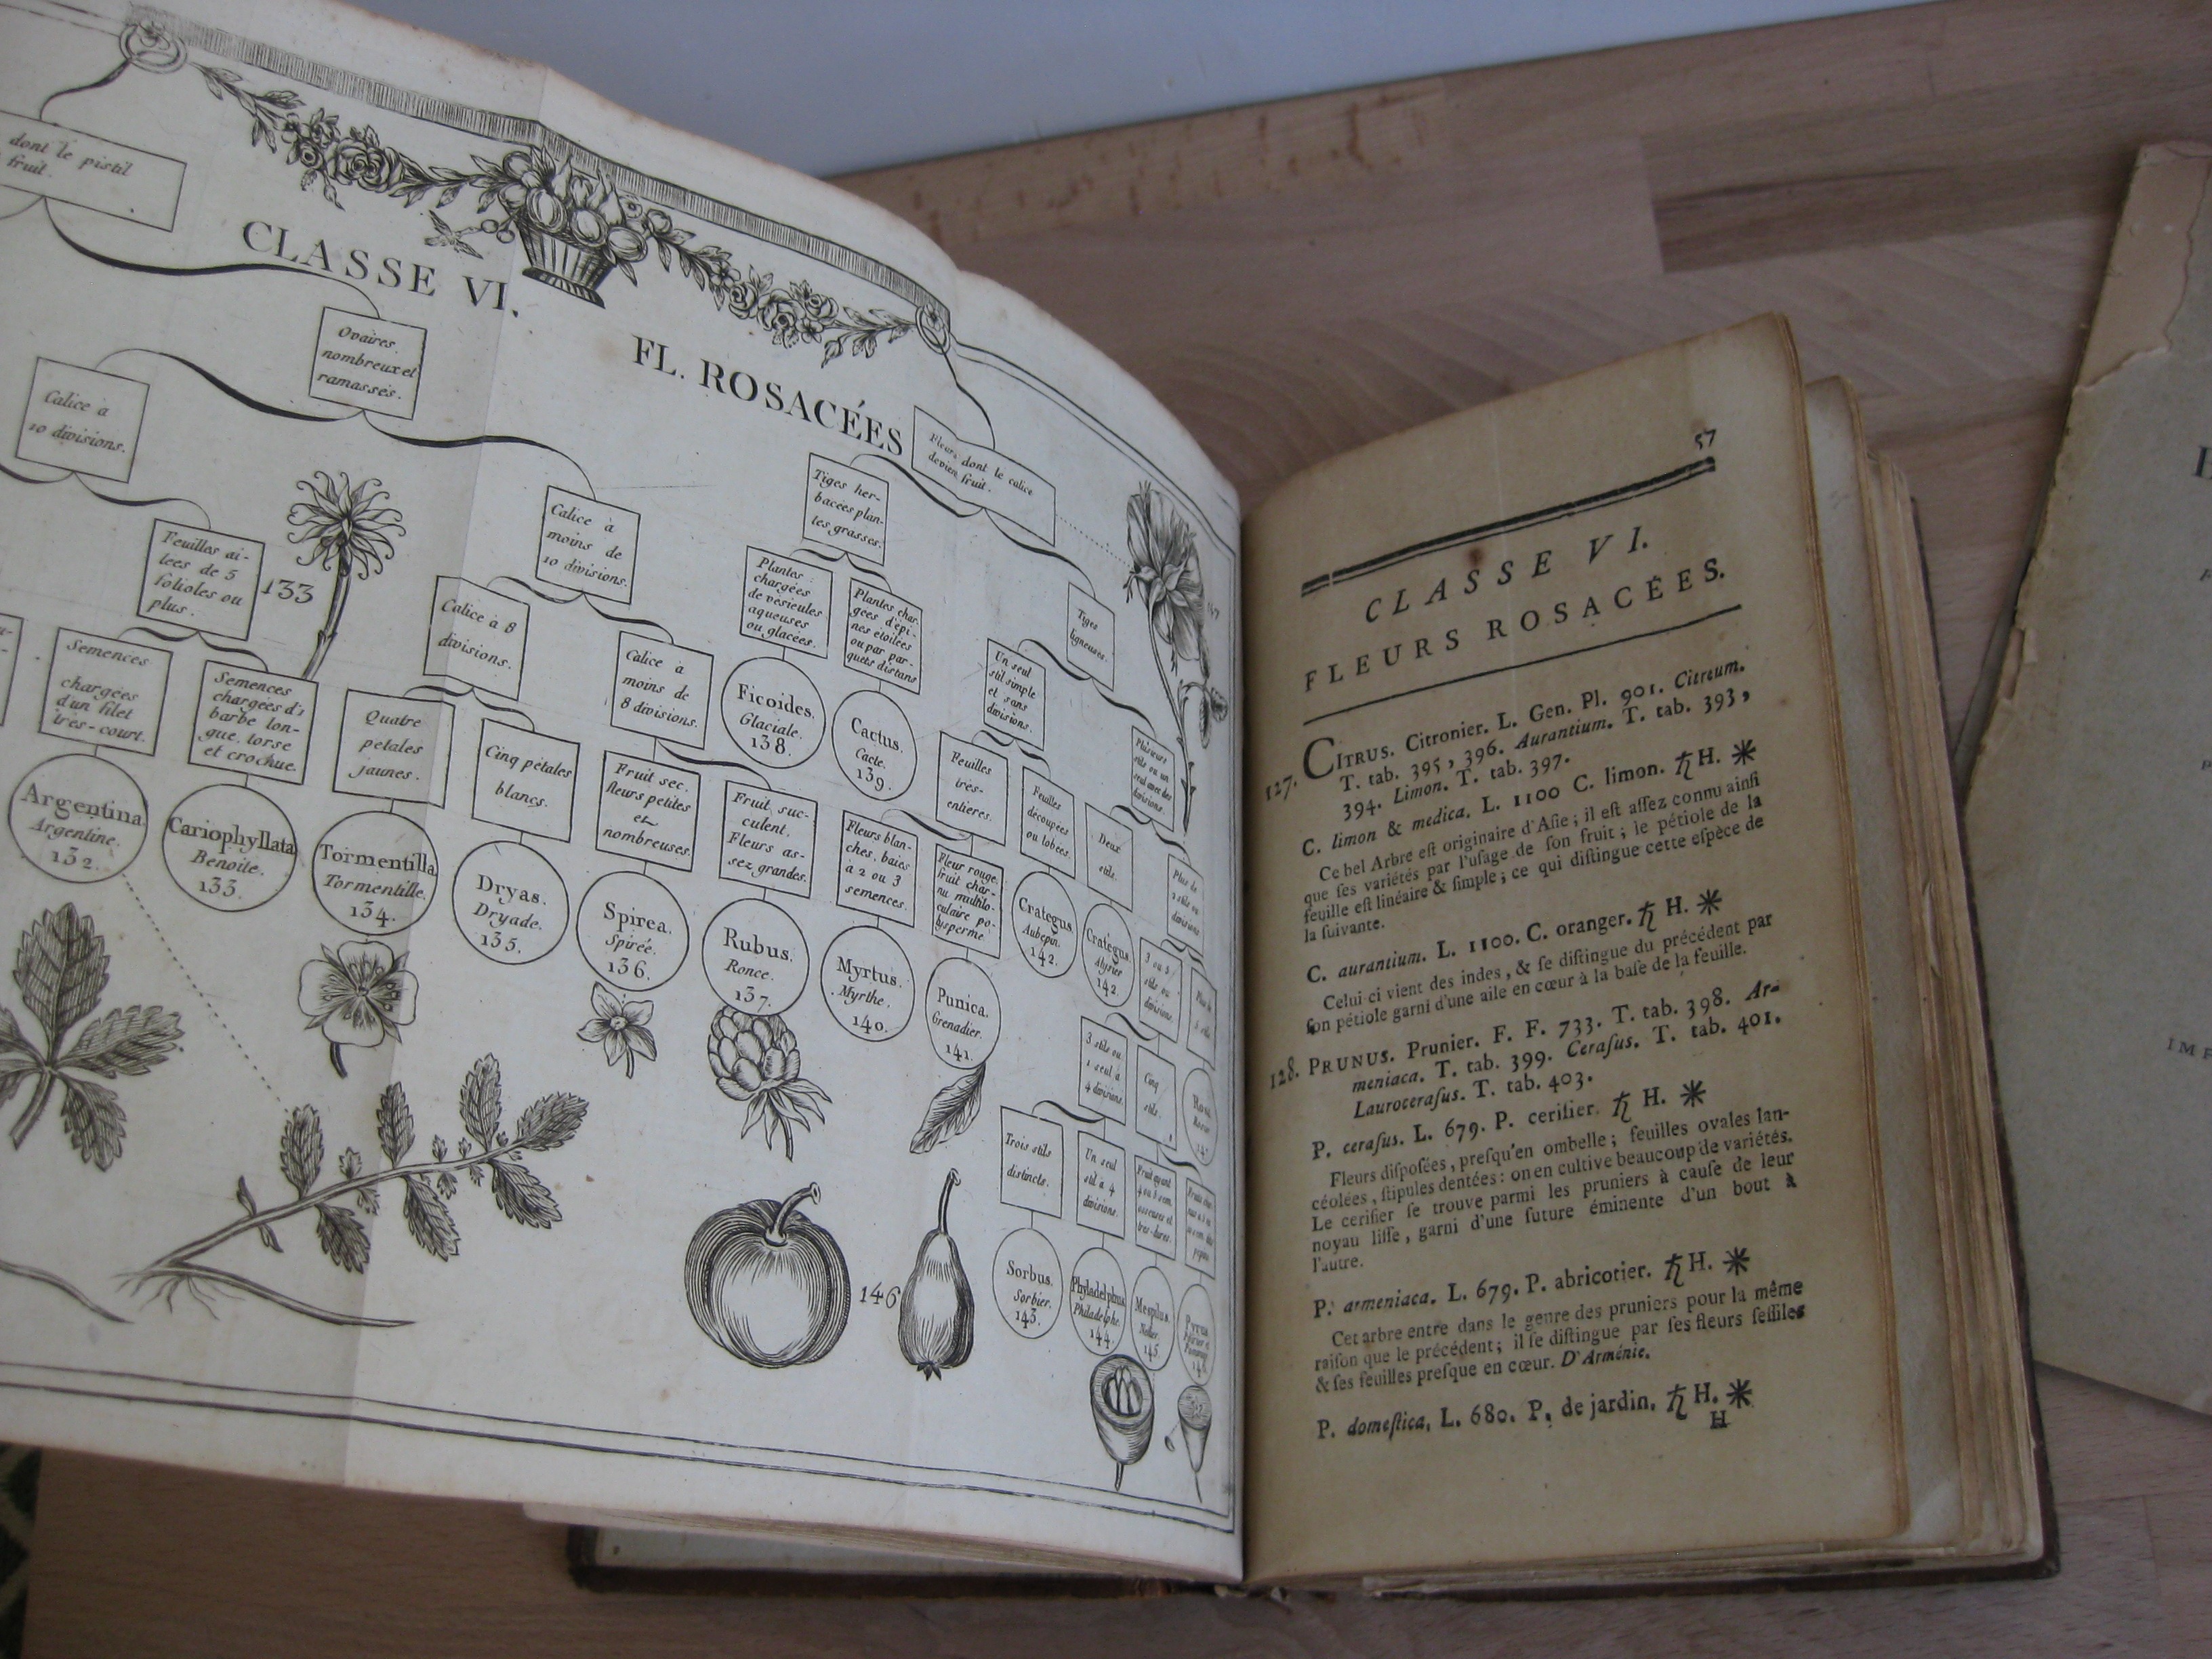 dont le pistil
fruit.
CLASSE VI.
FL. ROSACÉES
Ovaires
nombreux et
ramassés.
Calice à
10 divisions.
Feuilles ai-
lées de 5
folioles ou
plus.
133
Semences
chargées
d'un filet
très-court.
Semences
chargées d'1
barbe lon-
gue, torse
et crochue.
Argentina.
Argentine.
132.
Cariophyllata
Benoite.
133.
Calice à
moins de
10 divisions.
Calice à 8
divisions.
Quatre
petales
jaunes.
Cinq pétales
blancs.
Tormentilla.
Tormentille.
134.
Dryas.
Dryade.
135.
Calice à
moins de
8 divisions.
Fruit sec,
fleurs petites
et
nombreuses.
Fruit suc-
culent,
Fleurs as-
sez grandes.
Spirea.
Spirée.
136.
Rubus.
Ronce.
137.
Fleurs dont le calice
devien fruit.
Tiges her-
bacées plan-
tes grasses.
Plantes
chargées
de vésicules
aqueuses
ou glacées.
Plantes char-
gées d'épi-
nes étoilées
ou par par-
quets distans
Ficoides.
Glaciale.
138.
Cactus.
Cacte.
139.
Tiges
ligneuses.
Un seul
stil simple
et sans
divisions.
Plusieurs
stils ou un
seul avec des
divisions.
Feuilles
très-
entieres.
Feuilles
découpées
ou lobées.
Fleurs blan-
ches, baies
à 2 ou 3
semences.
Fleur rouge,
fruit char-
nu multilo-
culaire po-
lysperme.
Myrtus.
Myrthe.
140.
Punica.
Grenadier.
141.
Crategus.
Aubepin.
142.
Deux
stils.
Plus de
2 stils ou
divisions
Crategus.
Alysier
142.
3 ou 5
stils ou
divisions.
3 stils ou
1 seul à
4 divisions.
Cinq
stils.
Rosa.
Trois stils
distincts.
Un seul
stil à 4
divisions.
Sorbus.
Sorbier.
143.
Philadelphus.
Philadelphe.
144.
Mespilus.
Neflier.
145.
Pyrus
146
57
CLASSE VI.
FLEURS ROSACÉES.
127. CITRUS. Citronier. L. Gen. Pl. 901. Citreum.
T. tab. 395, 396. Aurantium. T. tab. 393,
394. Limon. T. tab. 397.
C. limon & medica. L. 1100 C. limon. ♄ H. ✳
Ce bel Arbre eſt originaire d'Aſie ; il eſt aſſez connu ainſi
que ſes variétés par l'uſage de ſon fruit ; le pétiole de la
feuille eſt linéaire & ſimple ; ce qui diſtingue cette eſpèce de
la ſuivante.
C. aurantium. L. 1100. C. oranger. ♄ H. ✳
Celui ci vient des indes, & ſe diſtingue du précédent par
ſon pétiole garni d'une aile en cœur à la baſe de la feuille.
128. PRUNUS. Prunier. F. F. 733. T. tab. 398. Ar-
meniaca. T. tab. 399. Ceraſus. T. tab. 401.
Lauroceraſus. T. tab. 403.
P. ceraſus. L. 679. P. ceriſier. ♄ H. ✳
Fleurs diſpoſées, preſqu'en ombelle ; feuilles ovales lan-
céolées, ſtipules dentées : on en cultive beaucoup de variétés.
Le ceriſier ſe trouve parmi les pruniers à cauſe de leur
noyau liſſe, garni d'une ſuture éminente d'un bout à
l'autre.
P. armeniaca. L. 679. P. abricotier. ♄ H. ✳
Cet arbre entre dans le genre des pruniers pour la même
raiſon que le précédent ; il ſe diſtingue par ſes fleurs ſeſſiles
& ſes feuilles preſque en cœur. D'Arménie.
P. domeſtica, L. 680. P. de jardin. ♄ H. ✳
H
IMP